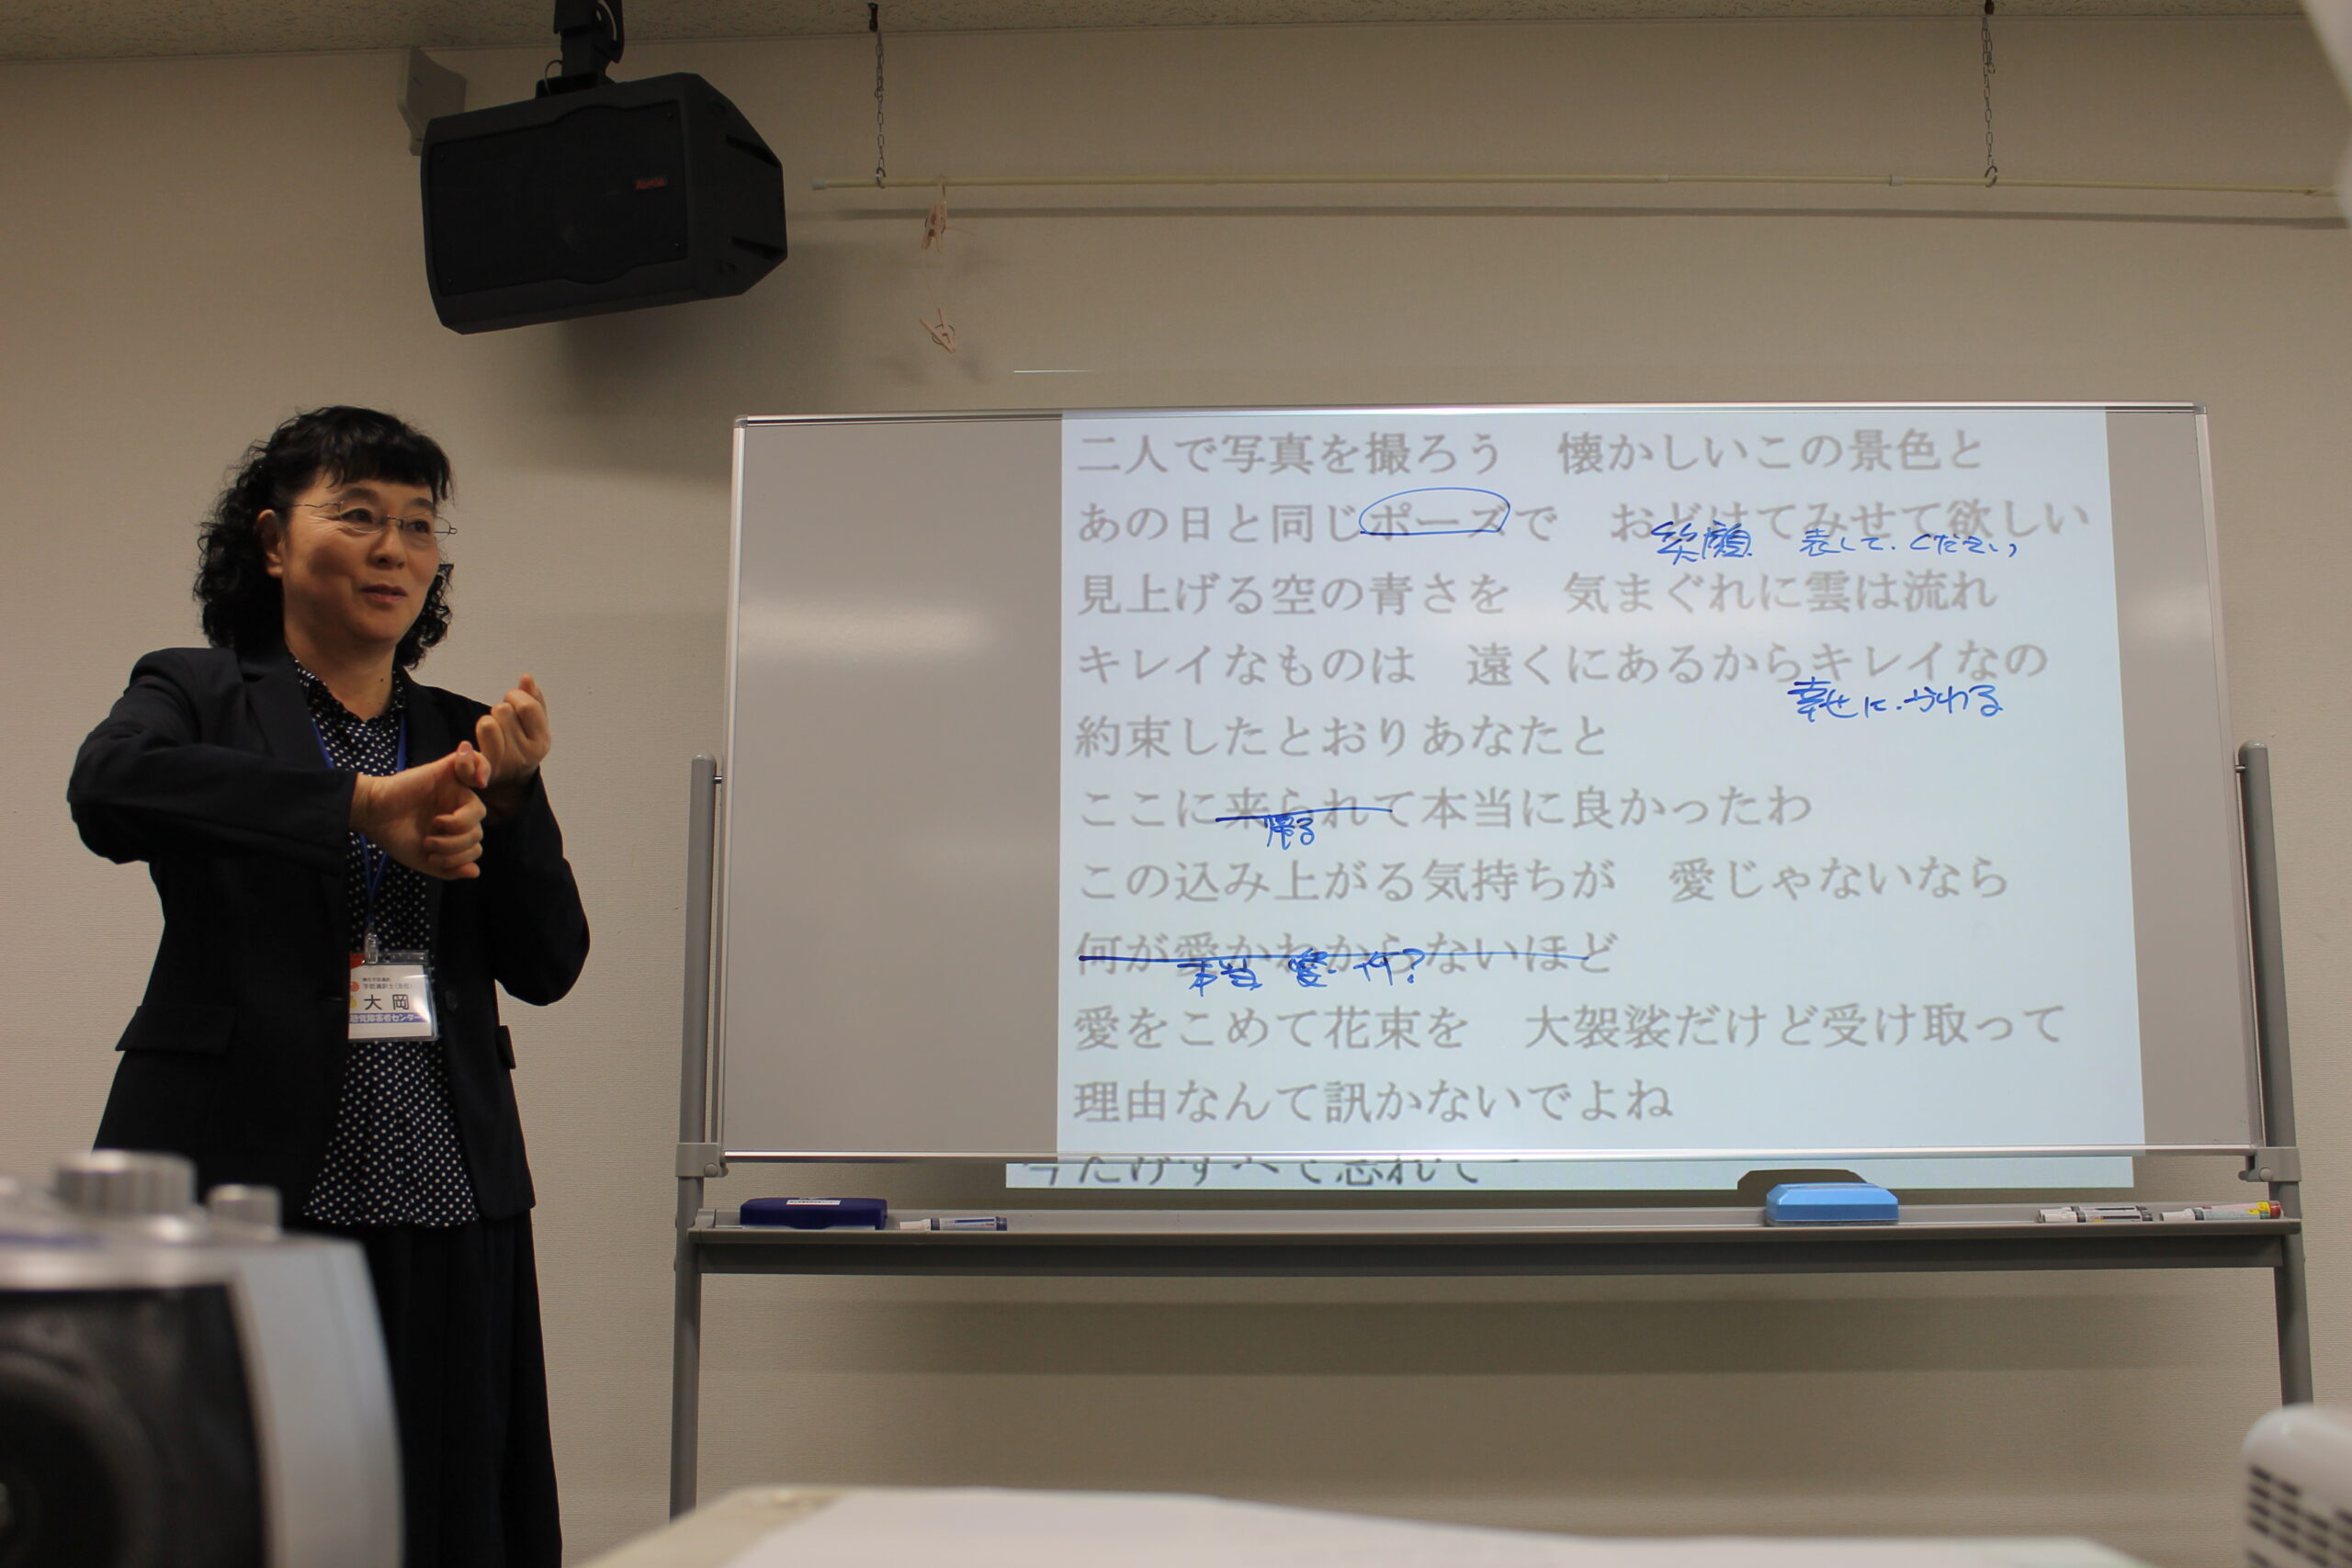 二人で写真を撮ろう　懐かしいこの景色と
あの日と同じポーズで　おどけてみせて欲しい
笑顔 表して.ください
見上げる空の青さを　気まぐれに雲は流れ
キレイなものは　遠くにあるからキレイなの
幸せに.かわる
約束したとおりあなたと
ここに来られて本当に良かったわ
帰る
この込み上がる気持ちが　愛じゃないなら
何が愛かわからないほど
本当 愛 何?
愛をこめて花束を　大袈裟だけど受け取って
理由なんて訊かないでよね
今だけすべて忘れて
大岡
聴覚障害者センター